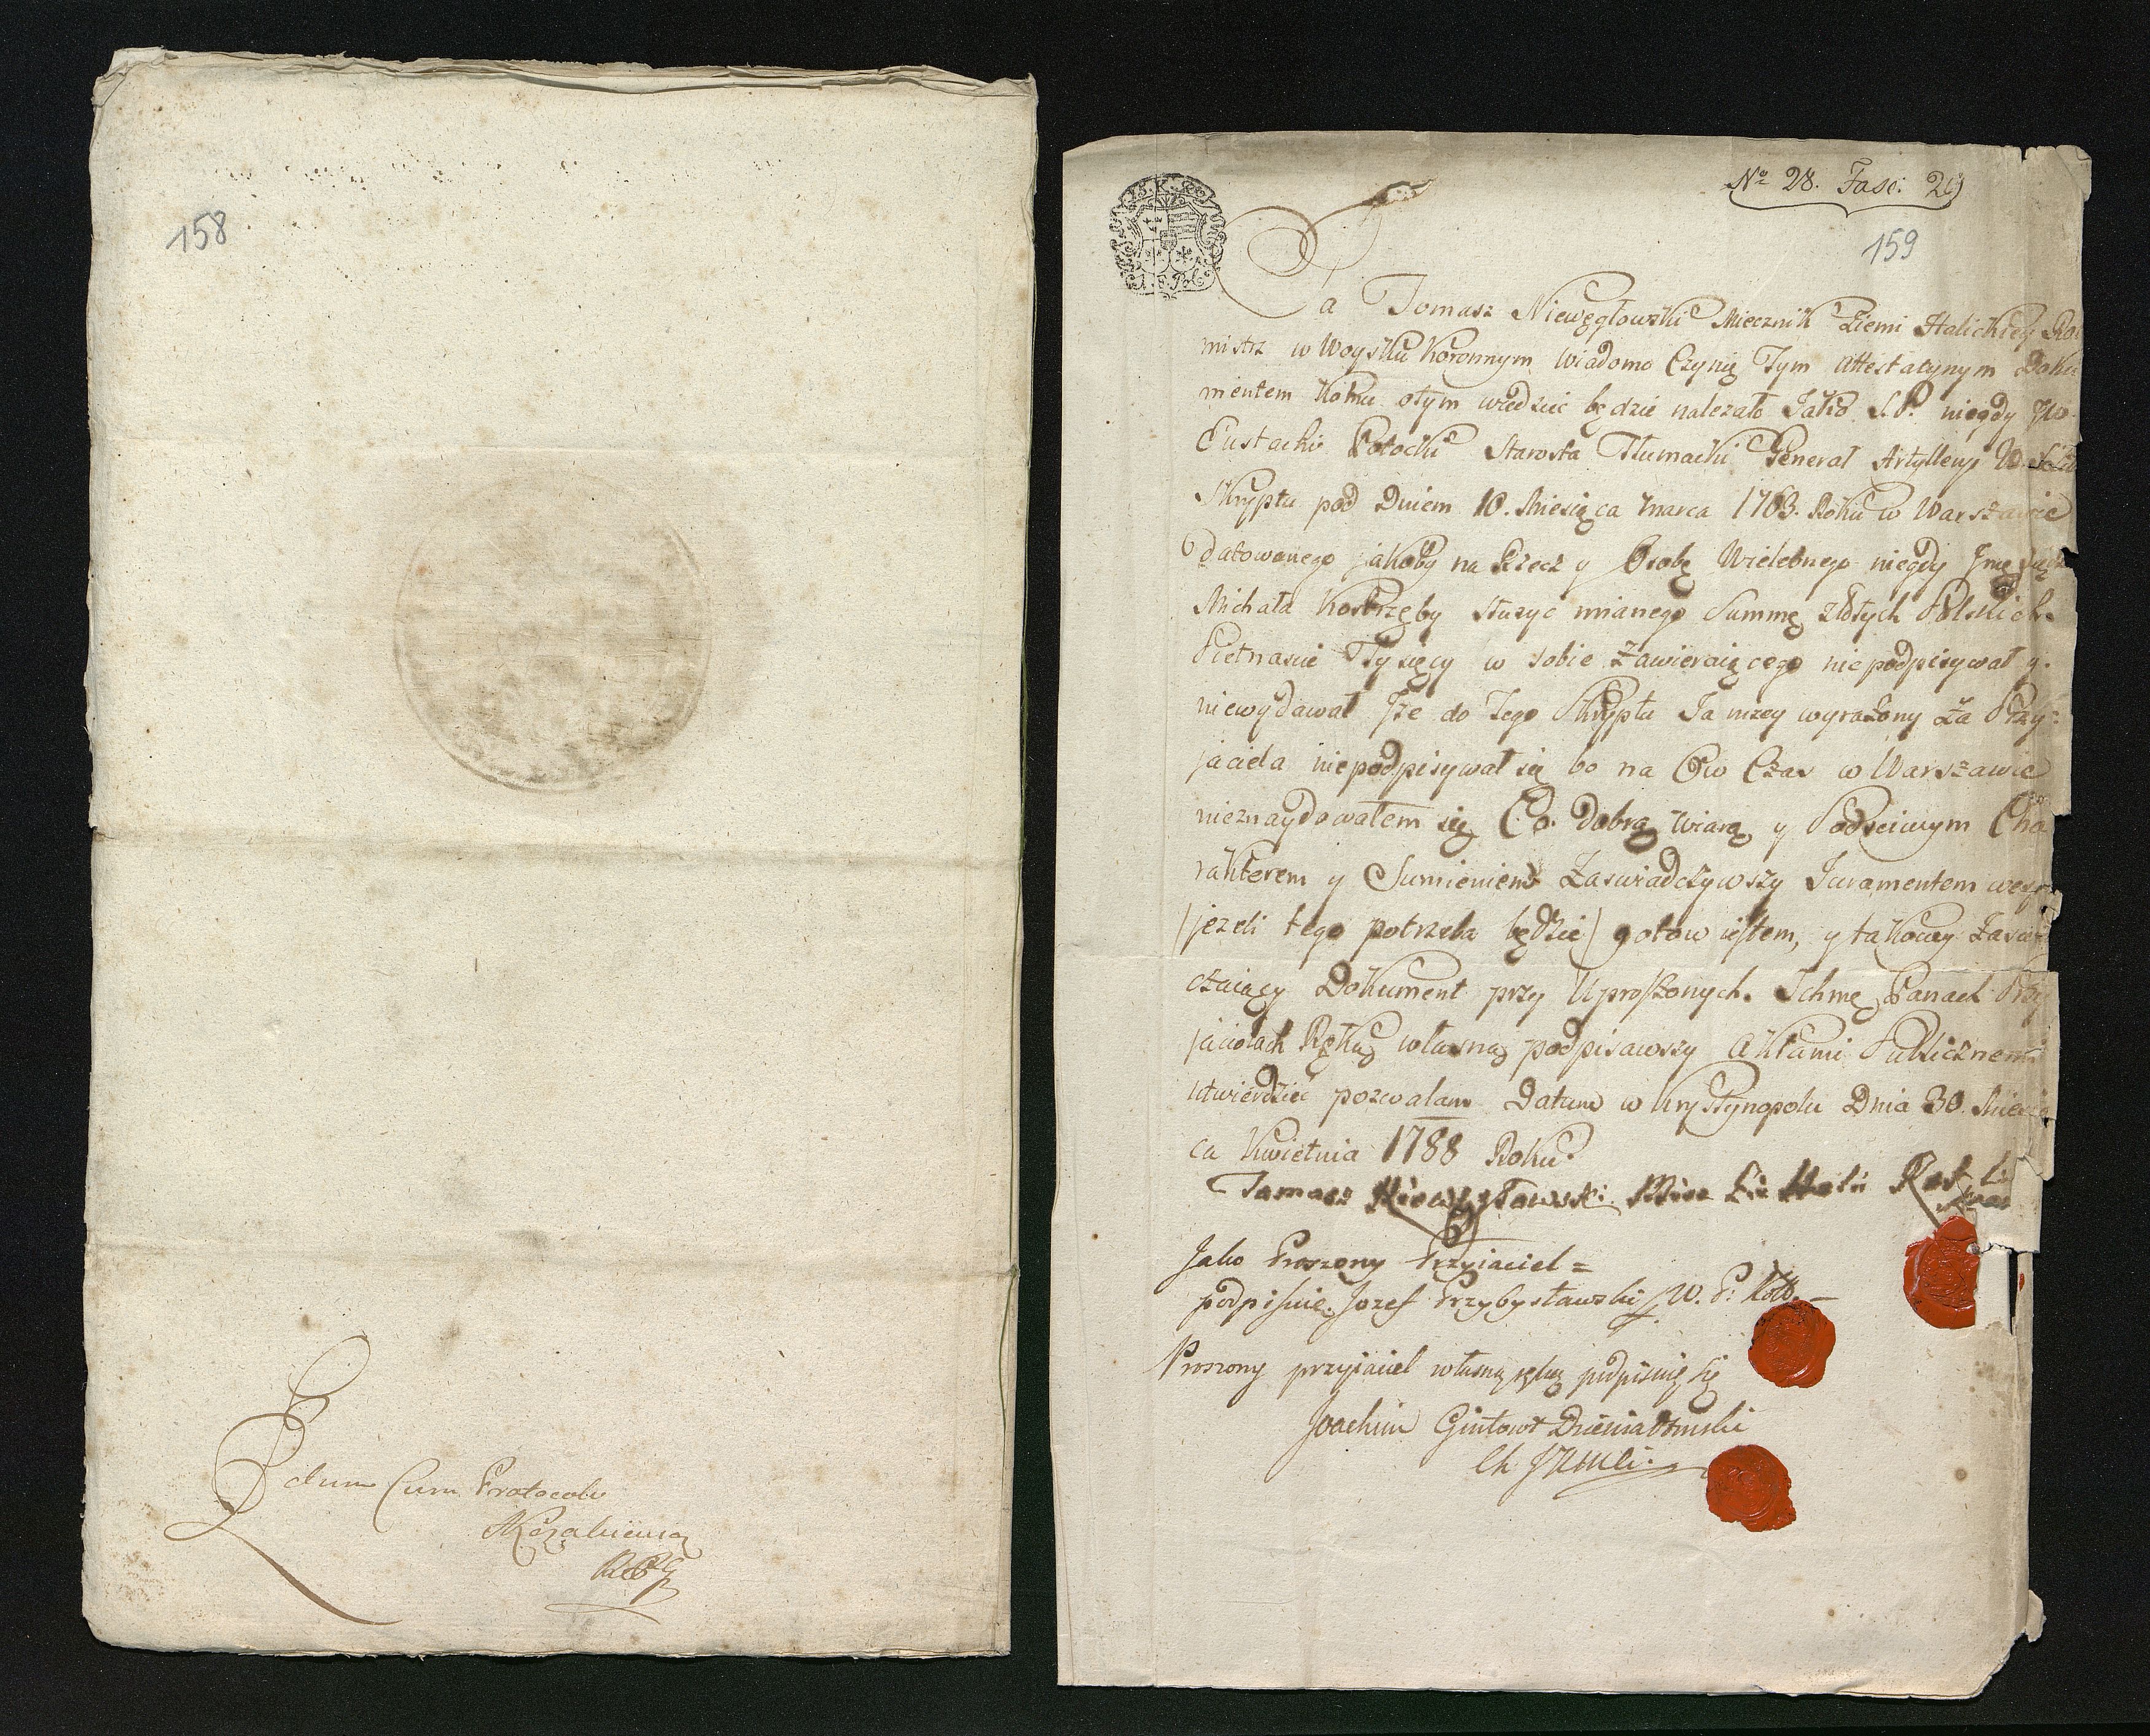 158
Edum Cum Protocolo
Nº 28. Fasc. 29
159
Ja Tomasz Niewęgłowski Miecznik Ziemi Halickiey Rot
mistrz w Woysku Koronnym wiadomo Czynię Tym Attestacynym Doku
mentem Komu otym wiedzieć będzie należało Jako S. P. niegdy JW
Eustachi Potocki Starosta Tłumacki Generał Artylleryi W.
Skryptu pod Dniem 10. Miesiąca Marca 1763. Roku w Warszawie
datowanego jakoby na Rzecz y Osobę Wielebnego niegdy Jmę
Michała Kostrzęby służyć mianego Summę złotych Polskich
Pietnascie Tysięcy w sobie zawieraiącego niepodpisywał y
niewydawał Jże do Tego Skryptu Ja wzey wyrażony Za Przy-
jaciela niepodpisywał się bo na Ow Czas w Warszawie
nieznaydowałem się Co Dobrą Wiarą y Podsciwym Cha
rakterem y Sumieniem Zaswiadczywszy Juramentem wesp
/jezeli tego potrzeba będzie/ gotow iestem, y takowy Zaswiad
czaiący Dokument przy Uproszonych Ichmę Panach Przy
jaciołach Ręką własną podpisawszy Aktami Publicznemi
utwierdzić pozwalam Datum w Krystynopolu Dnia 30. Miesią
ca Kwietnia 1788 Roku.
Tomasz Niewęgłowski Mie Zie Hali Rot
Jako Proszony Przyiaciel =
podpisuię. Jozef Przybysławski W. P.
Proszony przyiaciel własną ręką podpisuię się
Joachim Gintowt Dziewiałtowski